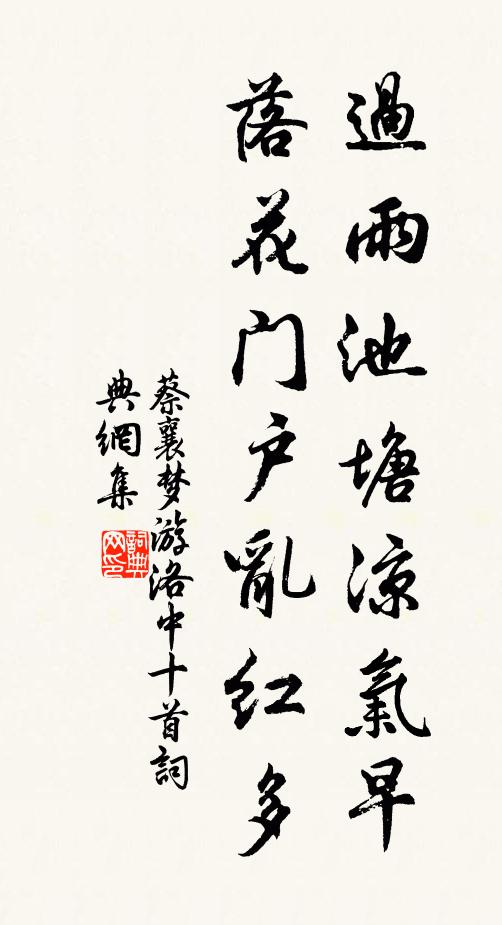 過雨池塘凉氣早
落花门户亂红多
蔡襄梦游洛中十首詞
典網集
詞典
网印